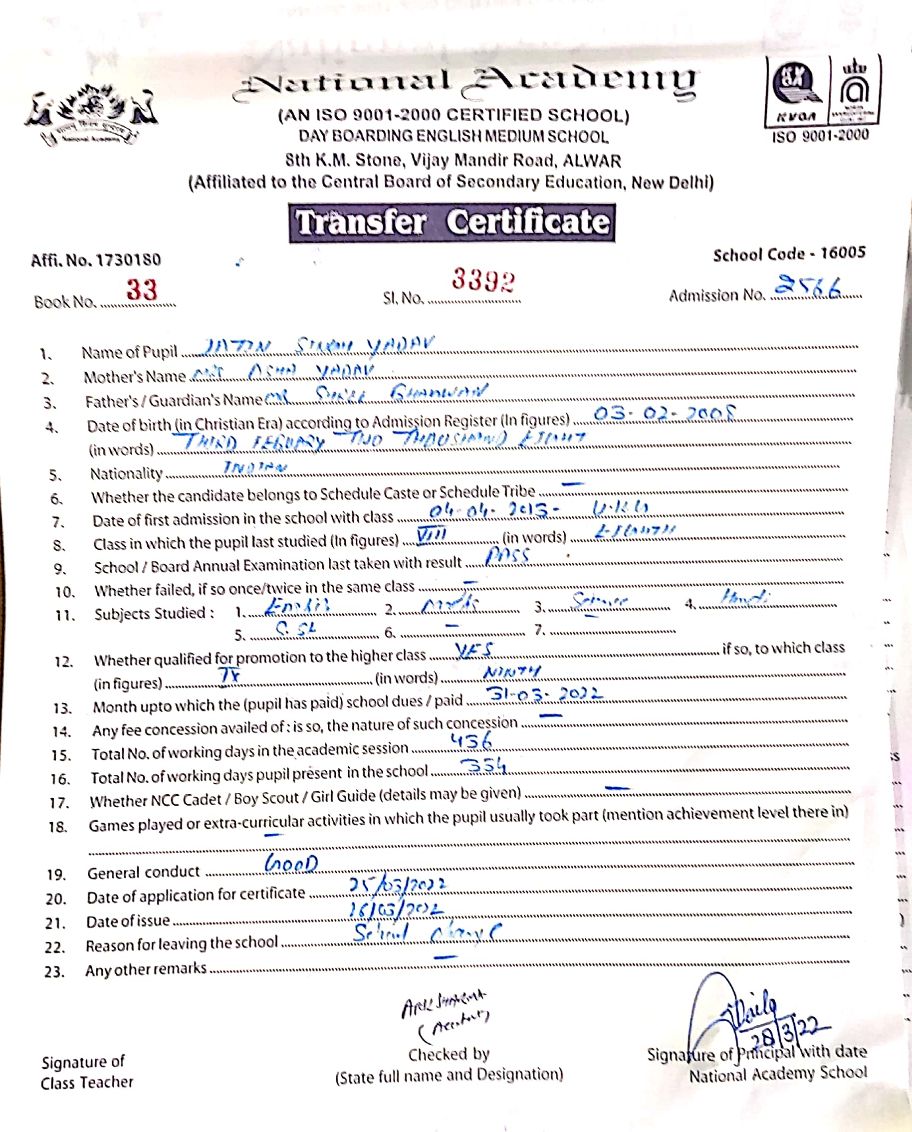 National Academy
(AN ISO 9001-2000 CERTIFIED SCHOOL)
DAY BOARDING ENGLISH MEDIUM SCHOOL
8th K.M. Stone, Vijay Mandir Road, ALWAR
(Affiliated to the Central Board of Secondary Education, New Delhi)
National Academy
KVQA
ISO 9001-2000
Transfer Certificate
Affi. No. 1730180
School Code - 16005
Book No. 33
Sl. No. 3392
Admission No. 2566
1. Name of Pupil JATIN SINGH YADAV
2. Mother's Name MRS ASHA YADAV
3. Father's / Guardian's Name MR BHAGWAN
4. Date of birth (in Christian Era) according to Admission Register (In figures) 03-02-2008
(in words) THIRD FEBUARY TWO THOUSAND EIGHT
5. Nationality INDIAN
6. Whether the candidate belongs to Schedule Caste or Schedule Tribe —
7. Date of first admission in the school with class 04-04-2013- U.KG
8. Class in which the pupil last studied (In figures) VIII (in words) EIGHTH
9. School / Board Annual Examination last taken with result PASS
10. Whether failed, if so once/twice in the same class —
11. Subjects Studied : 1. English 2. Maths 3. Science 4. Hindi
5. S.St 6. — 7. —
12. Whether qualified for promotion to the higher class YES if so, to which class
(in figures) IX (in words) NINTH
13. Month upto which the (pupil has paid) school dues / paid 31-03-2022
14. Any fee concession availed of : is so, the nature of such concession —
15. Total No. of working days in the academic session 436
16. Total No. of working days pupil present in the school 334
17. Whether NCC Cadet / Boy Scout / Girl Guide (details may be given) —
18. Games played or extra-curricular activities in which the pupil usually took part (mention achievement level there in)
—
19. General conduct GOOD
20. Date of application for certificate 25/03/2022
21. Date of issue /03/2022
22. Reason for leaving the school School Change
23. Any other remarks —
28/3/22
Signature of
Class Teacher
Checked by
(State full name and Designation)
Signature of Principal with date
National Academy School